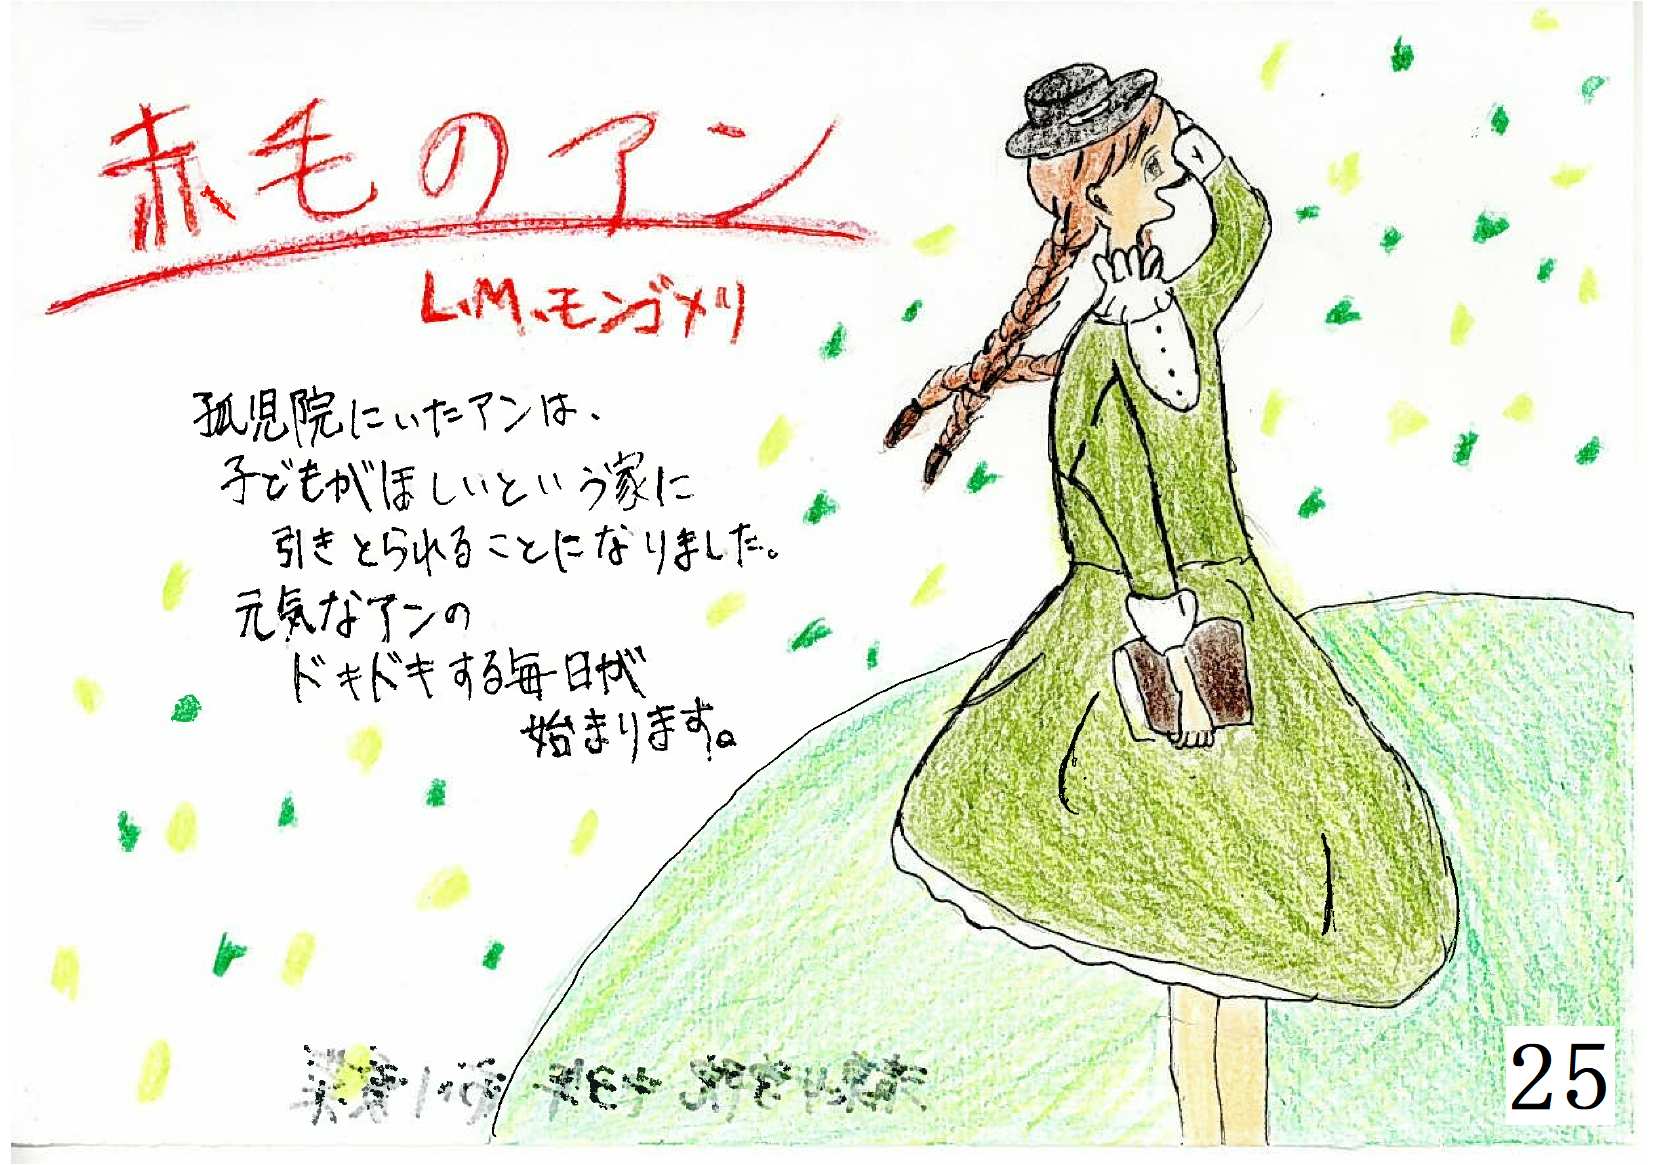 赤毛のアン
L.M.モンゴメリ
孤児院にいたアンは、
子どもがほしいという家に
引きとられることになりました。
元気なアンの
ドキドキする毎日が
始まります。
25